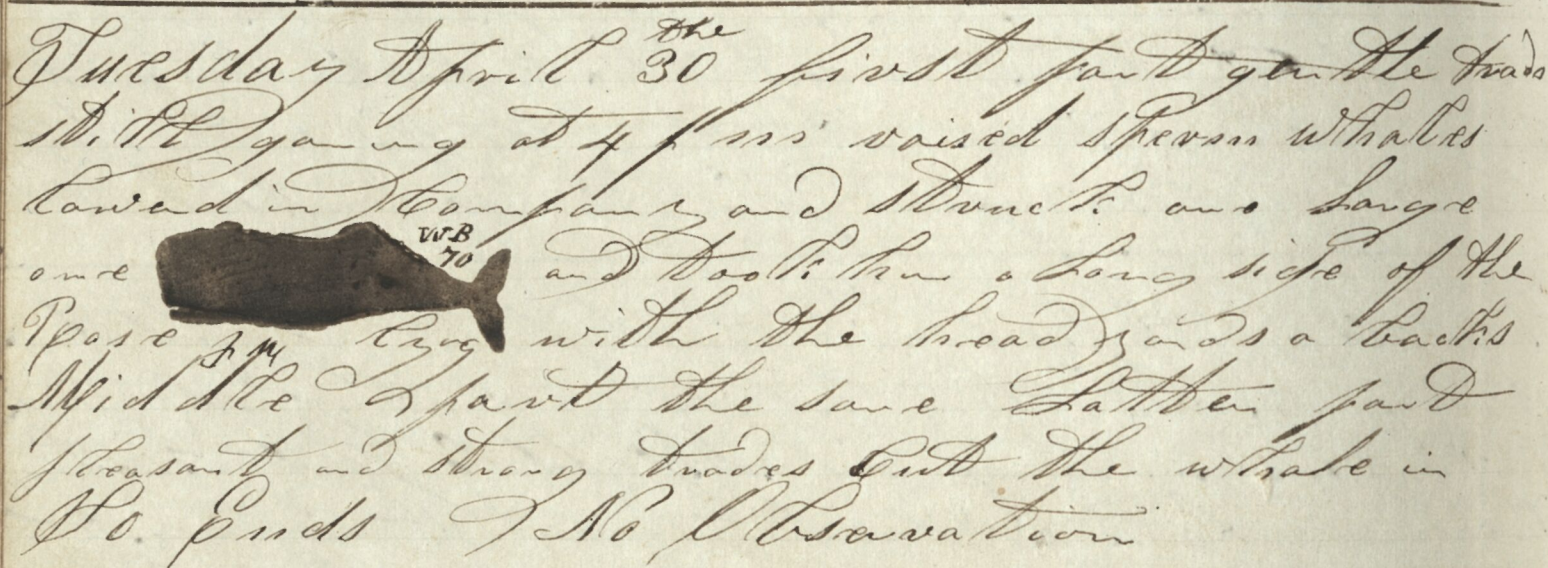 Tuesday April 30 the first part gentle trads
still gaming at 4 pm raised sperm whales
lowerd in Company and struck one Large
one WB 70 and took him a Long side of the
Rose lying with the head yards a backs
Middle part the same Latter part
pleasant and strong trades Cut the whale in
So Ends No Observation